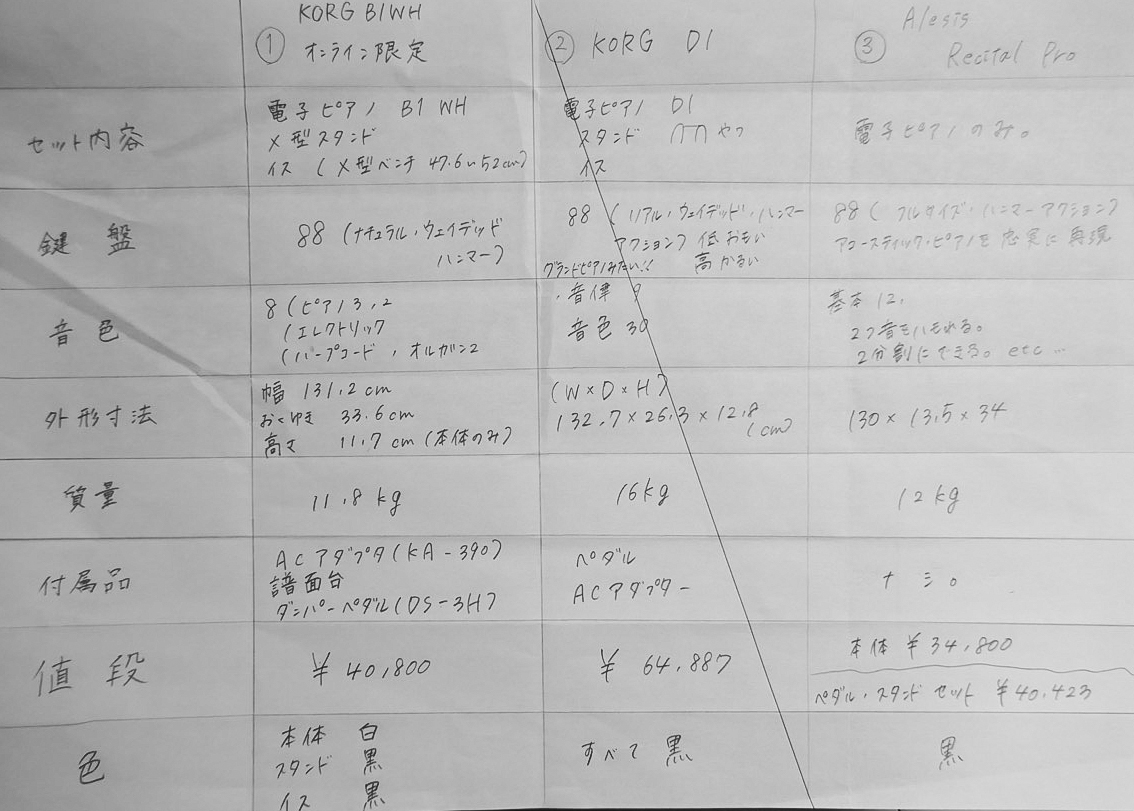 ① KORG B1WH
オンライン限定
② KORG D1
③ Alesis
Recital Pro
セット内容
電子ピアノ B1 WH
X型スタンド
イス (X型ベンチ 47.6〜52cm)
電子ピアノ D1
スタンド やつ
イス
電子ピアノのみ。
鍵盤
88 (ナチュラル・ウェイデッド
ハンマー)
88 (リアル・ウェイデッド・ハンマー
アクション) 低 おもい
グランドピアノみたい!! 高 かるい
88 (フルサイズ・ハンマーアクション)
アコースティック・ピアノを忠実に再現
音色
8 (ピアノ3,2
(エレクトリック
(ハープコード, オルガン2
・音律 9
音色 30
基本 12,
2つ音もハモれる。
2分割にできる。etc…
外形寸法
幅 131.2cm
おくゆき 33.6cm
高さ 11.7cm (本体のみ)
(W×D×H)
132.7×26.3×12.8
(cm)
130×13.5×34
質量
11.8kg
16kg
12kg
付属品
ACアダプタ(KA-390)
譜面台
ダンパーペダル(DS-3H)
ペダル
ACアダプター
ナシ。
値段
¥40,800
¥64,887
本体 ¥34,800
ペダル・スタンド セット ¥40,423
色
本体 白
スタンド 黒
イス 黒
すべて 黒
黒